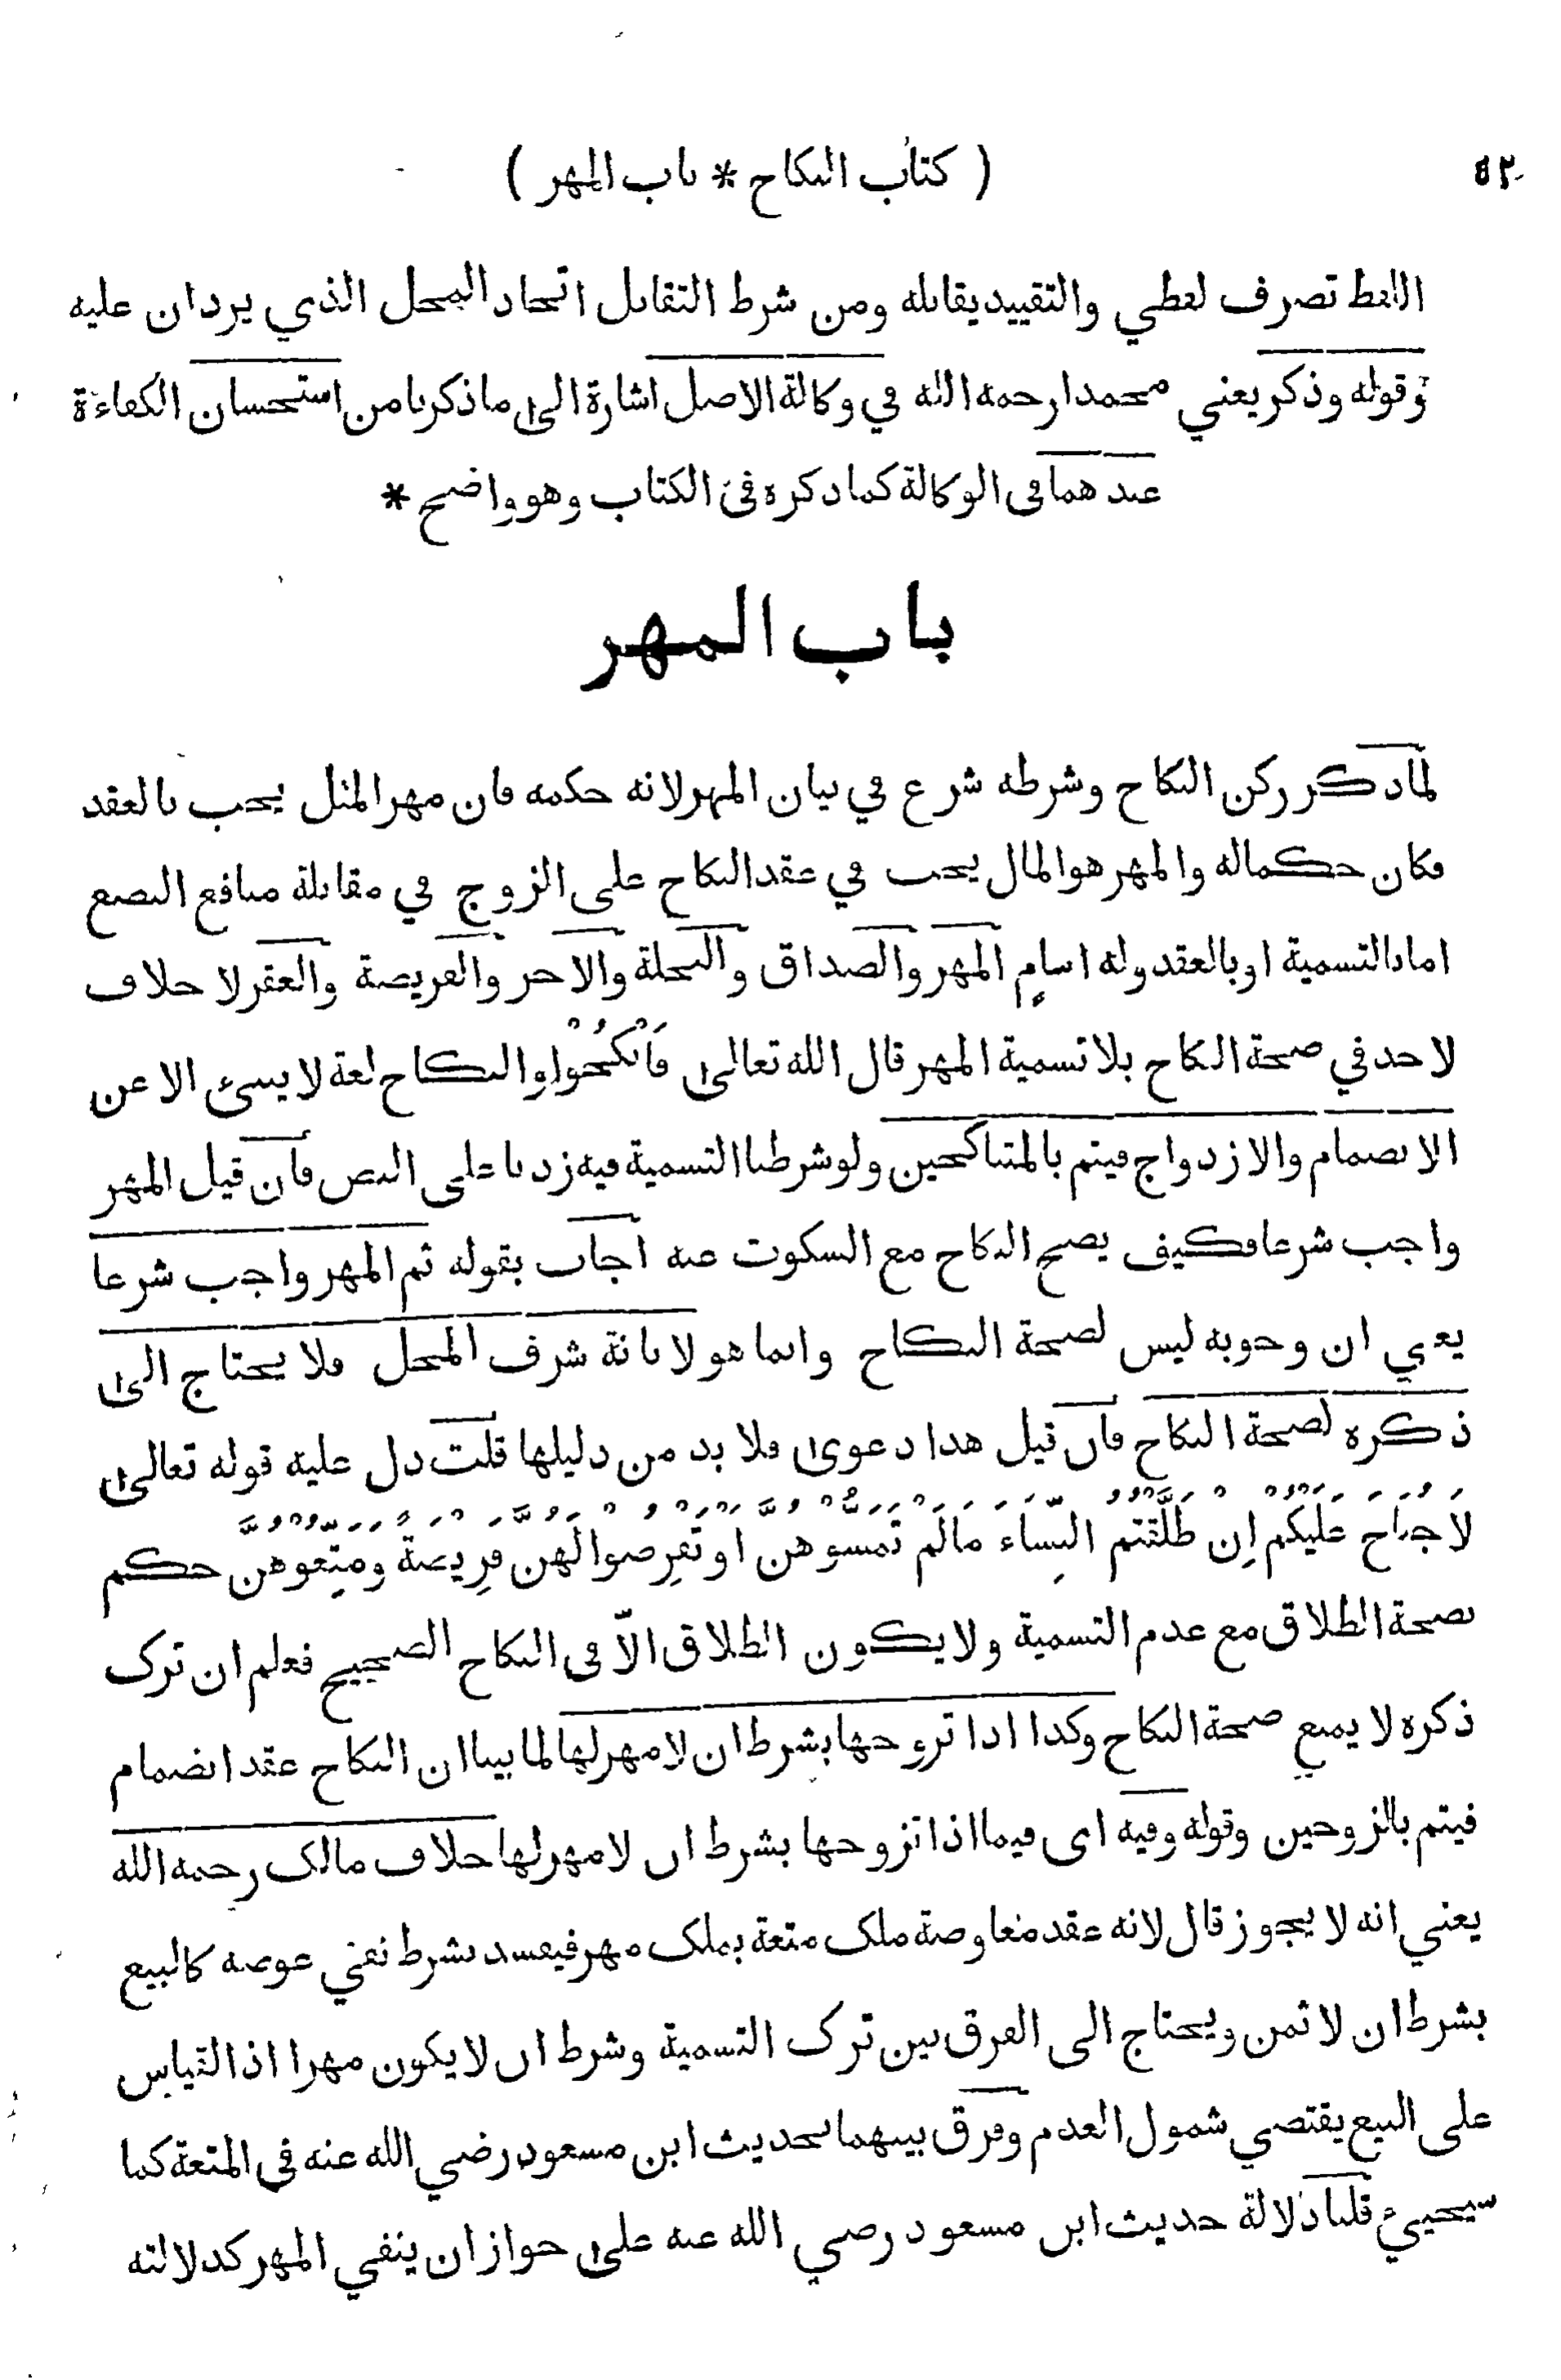 ٥٢
( كتاب النكاح * باب المهر )
اللفظ تصرف لفظي والتقييد يقابله ومن شرط التقابل اتحاد المحل الذي يردان عليه
وقوله وذكر يعني محمدا رحمه الله في وكالة الاصل اشارة الى ما ذكرنا من استحسان الكفاءة
عندهما في الوكالة كما ذكره في الكتاب وهو واضح *
باب المهر
لما ذكر ركن النكاح وشرطه شرع في بيان المهر لانه حكمه فان مهر المثل يجب بالعقد
فكان حكما له والمهر هو المال يجب في عقد النكاح على الزوج في مقابلة منافع البضع
اما بالتسمية او بالعقد وله اسامٍ المهر والصداق والنحلة والاجر والفريضة والعقر لا خلاف
لاحد في صحة النكاح بلا تسمية المهر قال الله تعالى فَانْكِحُوا والنكاح لغة لا ينبئ الا عن
الانضمام والازدواج فيتم بالمتناكحين ولو شرطنا التسمية فيه زدنا على النص فان قيل المهر
واجب شرعا فكيف يصح النكاح مع السكوت عنه اجاب بقوله ثم المهر واجب شرعا
يعني ان وجوبه ليس لصحة النكاح وانما هو لابانة شرف المحل فلا يحتاج الى
ذكره لصحة النكاح فان قيل هذا دعوى فلا بد من دليلها قلت دل عليه قوله تعالى
لَا جُنَاحَ عَلَيْكُمْ اِنْ طَلَّقْتُمُ النِّسَاءَ مَا لَمْ تَمَسُّوْهُنَّ اَوْ تَفْرِضُوْا لَهُنَّ فَرِيْضَةً وَمَتِّعُوْهُنَّ حكم
بصحة الطلاق مع عدم التسمية ولا يكون الطلاق الّا في النكاح الصحيح فعلم ان ترك
ذكره لا يمنع صحة النكاح وكذا اذا تزوجها بشرط ان لا مهر لها لما بينا ان النكاح عقد انضمام
فيتم بالزوجين وقوله وفيه اى فيما اذا تزوجها بشرط ان لا مهر لها خلاف مالك رحمه الله
يعني انه لا يجوز قال لانه عقد معاوضة ملك متعة بملك مهر فيفسد بشرط نفي عوضه كالبيع
بشرط ان لا ثمن ويحتاج الى الفرق بين ترك التسمية وشرط ان لا يكون مهرا اذ القياس
على البيع يقتضي شمول العدم وفرق بينهما بحديث ابن مسعود رضي الله عنه في المتعة كما
سيجيئ قلنا دلالة حديث ابن مسعود رضي الله عنه على جواز ان ينفي المهر كدلالته